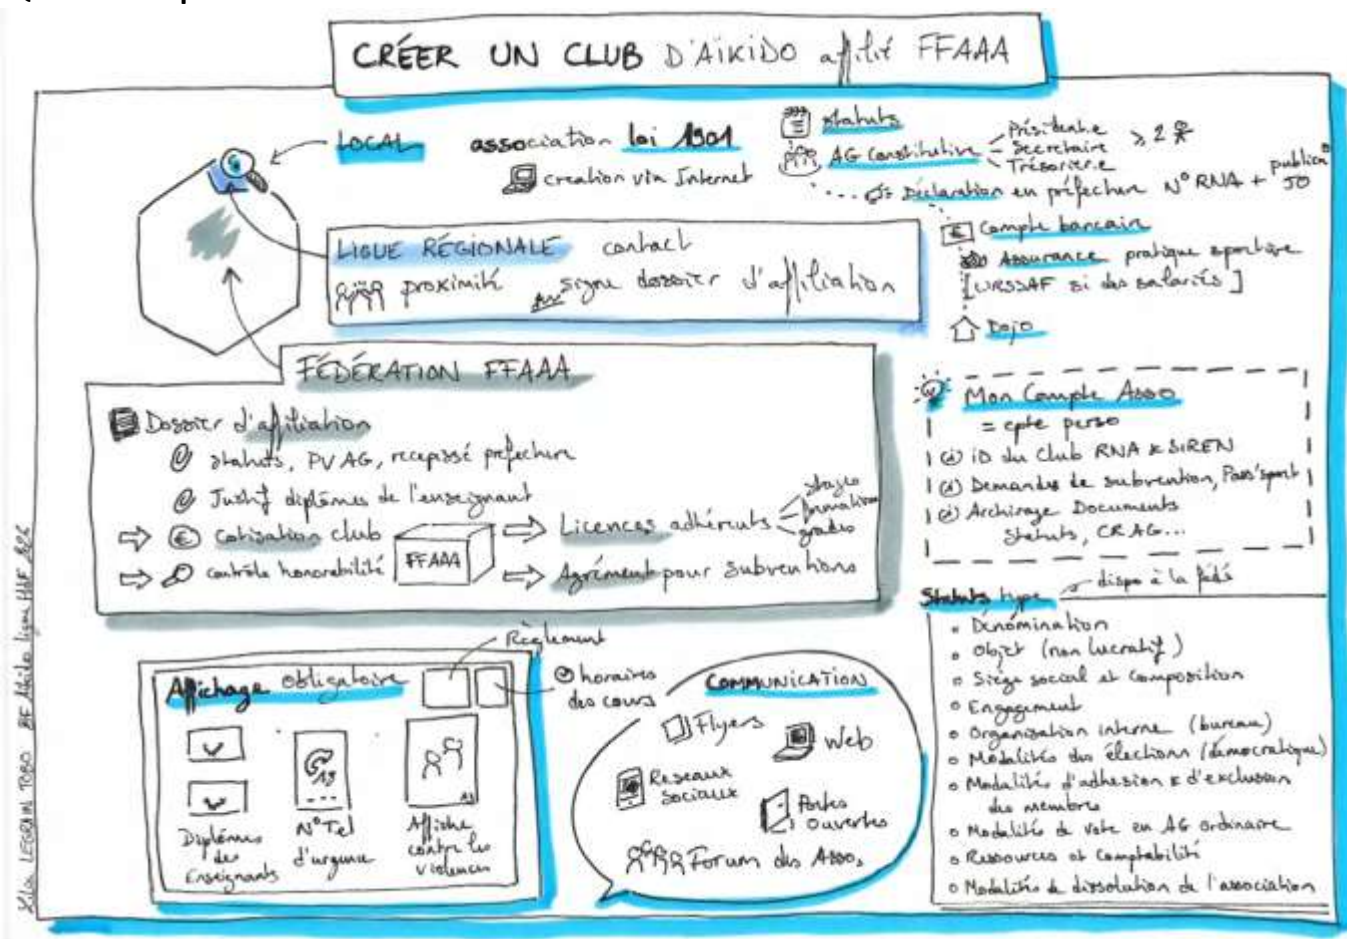 CRÉER UN CLUB D'AÏKIDO affilié FFAAA
LOCAL
association loi 1901
creation via Internet
statuts
AG Constitutive
Président.e
Secrétaire
Trésorier.e
≥ 2
Déclaration en préfecture N° RNA + publica° JO
Compte bancaire
Assurance pratique sportive
[URSSAF si des salariés]
Dojo
LIGUE RÉGIONALE contact
proximité signe dossier d'affiliation
FÉDÉRATION FFAAA
Dossier d'affiliation
statuts, PV AG, recepissé préfecture
Justif diplômes de l'enseignant
€ cotisation club
contrôle honorabilité
FFAAA
Licences adhérents
stages
formations
grades
Agrément pour subventions
Mon Compte Asso
= cpte perso
iD du Club RNA & SIREN
Demandes de subvention, Pass'sport
Archivage Documents
Statuts, CR AG...
Statuts type
dispo à la fédé
Dénomination
Objet (non lucratif)
Siège social et Composition
Engagement
Organisation interne (bureau)
Modalités des élections (démocratique)
Modalités d'adhesion & d'exclusion
des membres
Modalités de vote en AG ordinaire
Ressources et Comptabilité
Modalités de dissolution de l'association
Affichage obligatoire
Règlement
horaires
des cours
Diplômes
des
Enseignants
N° Tel
d'urgence
Affiche
contre les
violences
COMMUNICATION
Flyers
Web
Reseaux
Sociaux
Portes
Ouvertes
Forum des Asso.
LEGRAIN TOBO BF Aïkido ligue HdF